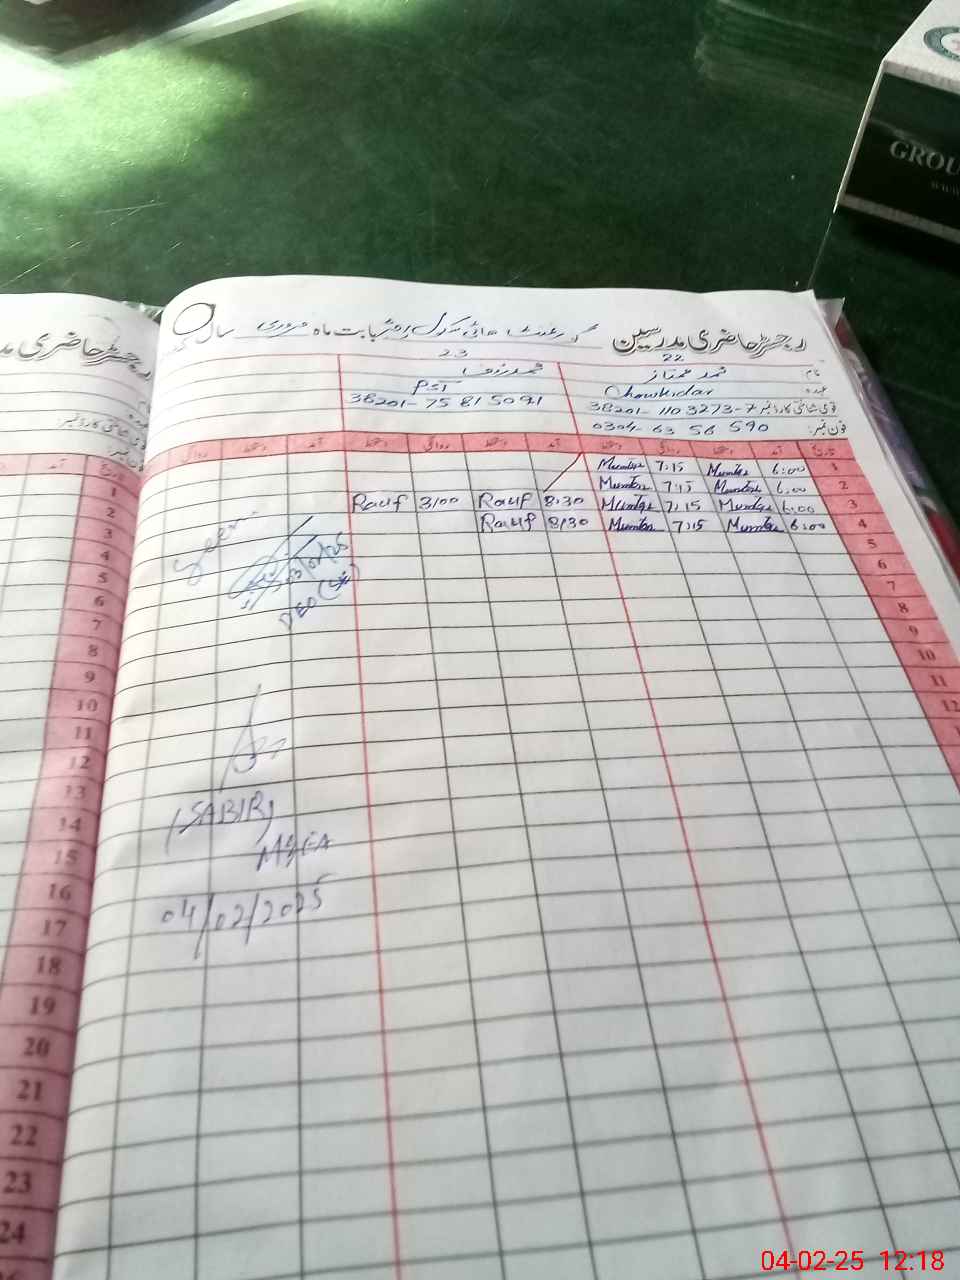 GROU
رجسٹر حاضری مدرسین گورنمنٹ ہائی سکول بابت ماہ فروری سال
رجسٹر حاضری
22 23
نام محمد ممتاز محمد رؤف
عہدہ Chowkidar PST
قومی شناختی کارڈ نمبر 38201-1103273-7 38201-7581509.1
فون نمبر: 0304-63 56 590
تاریخ آمد دستخط روانگی دستخط آمد دستخط روانگی دستخط آمد دستخط روانگی
1 6:00 Mumtaz 7:15 Mumtaz
2 6:00 Mumtaz 7:15 Mumtaz
3 6:00 Mumtaz 7:15 Mumtaz 8:30 Rauf 3:00 Rauf
4 6:00 Mumtaz 7:15 Mumtaz 8:30 Rauf
5
6
7
8
9
10
11
12
03/02/25
DEO
(SABIR)
MEA
04/02/2025
تاریخ آمد
1
2
3
4
5
6
7
8
9
10
11
12
13
14
15
16
17
18
19
20
21
22
23
24
04-02-25 12:18